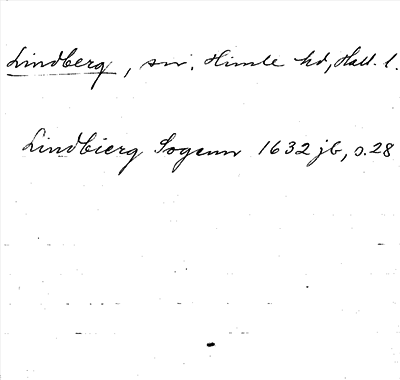 Lindberg, sn. Himle hd, Hall. l.
Lindbierg Sogenn 1632 jb, s. 28